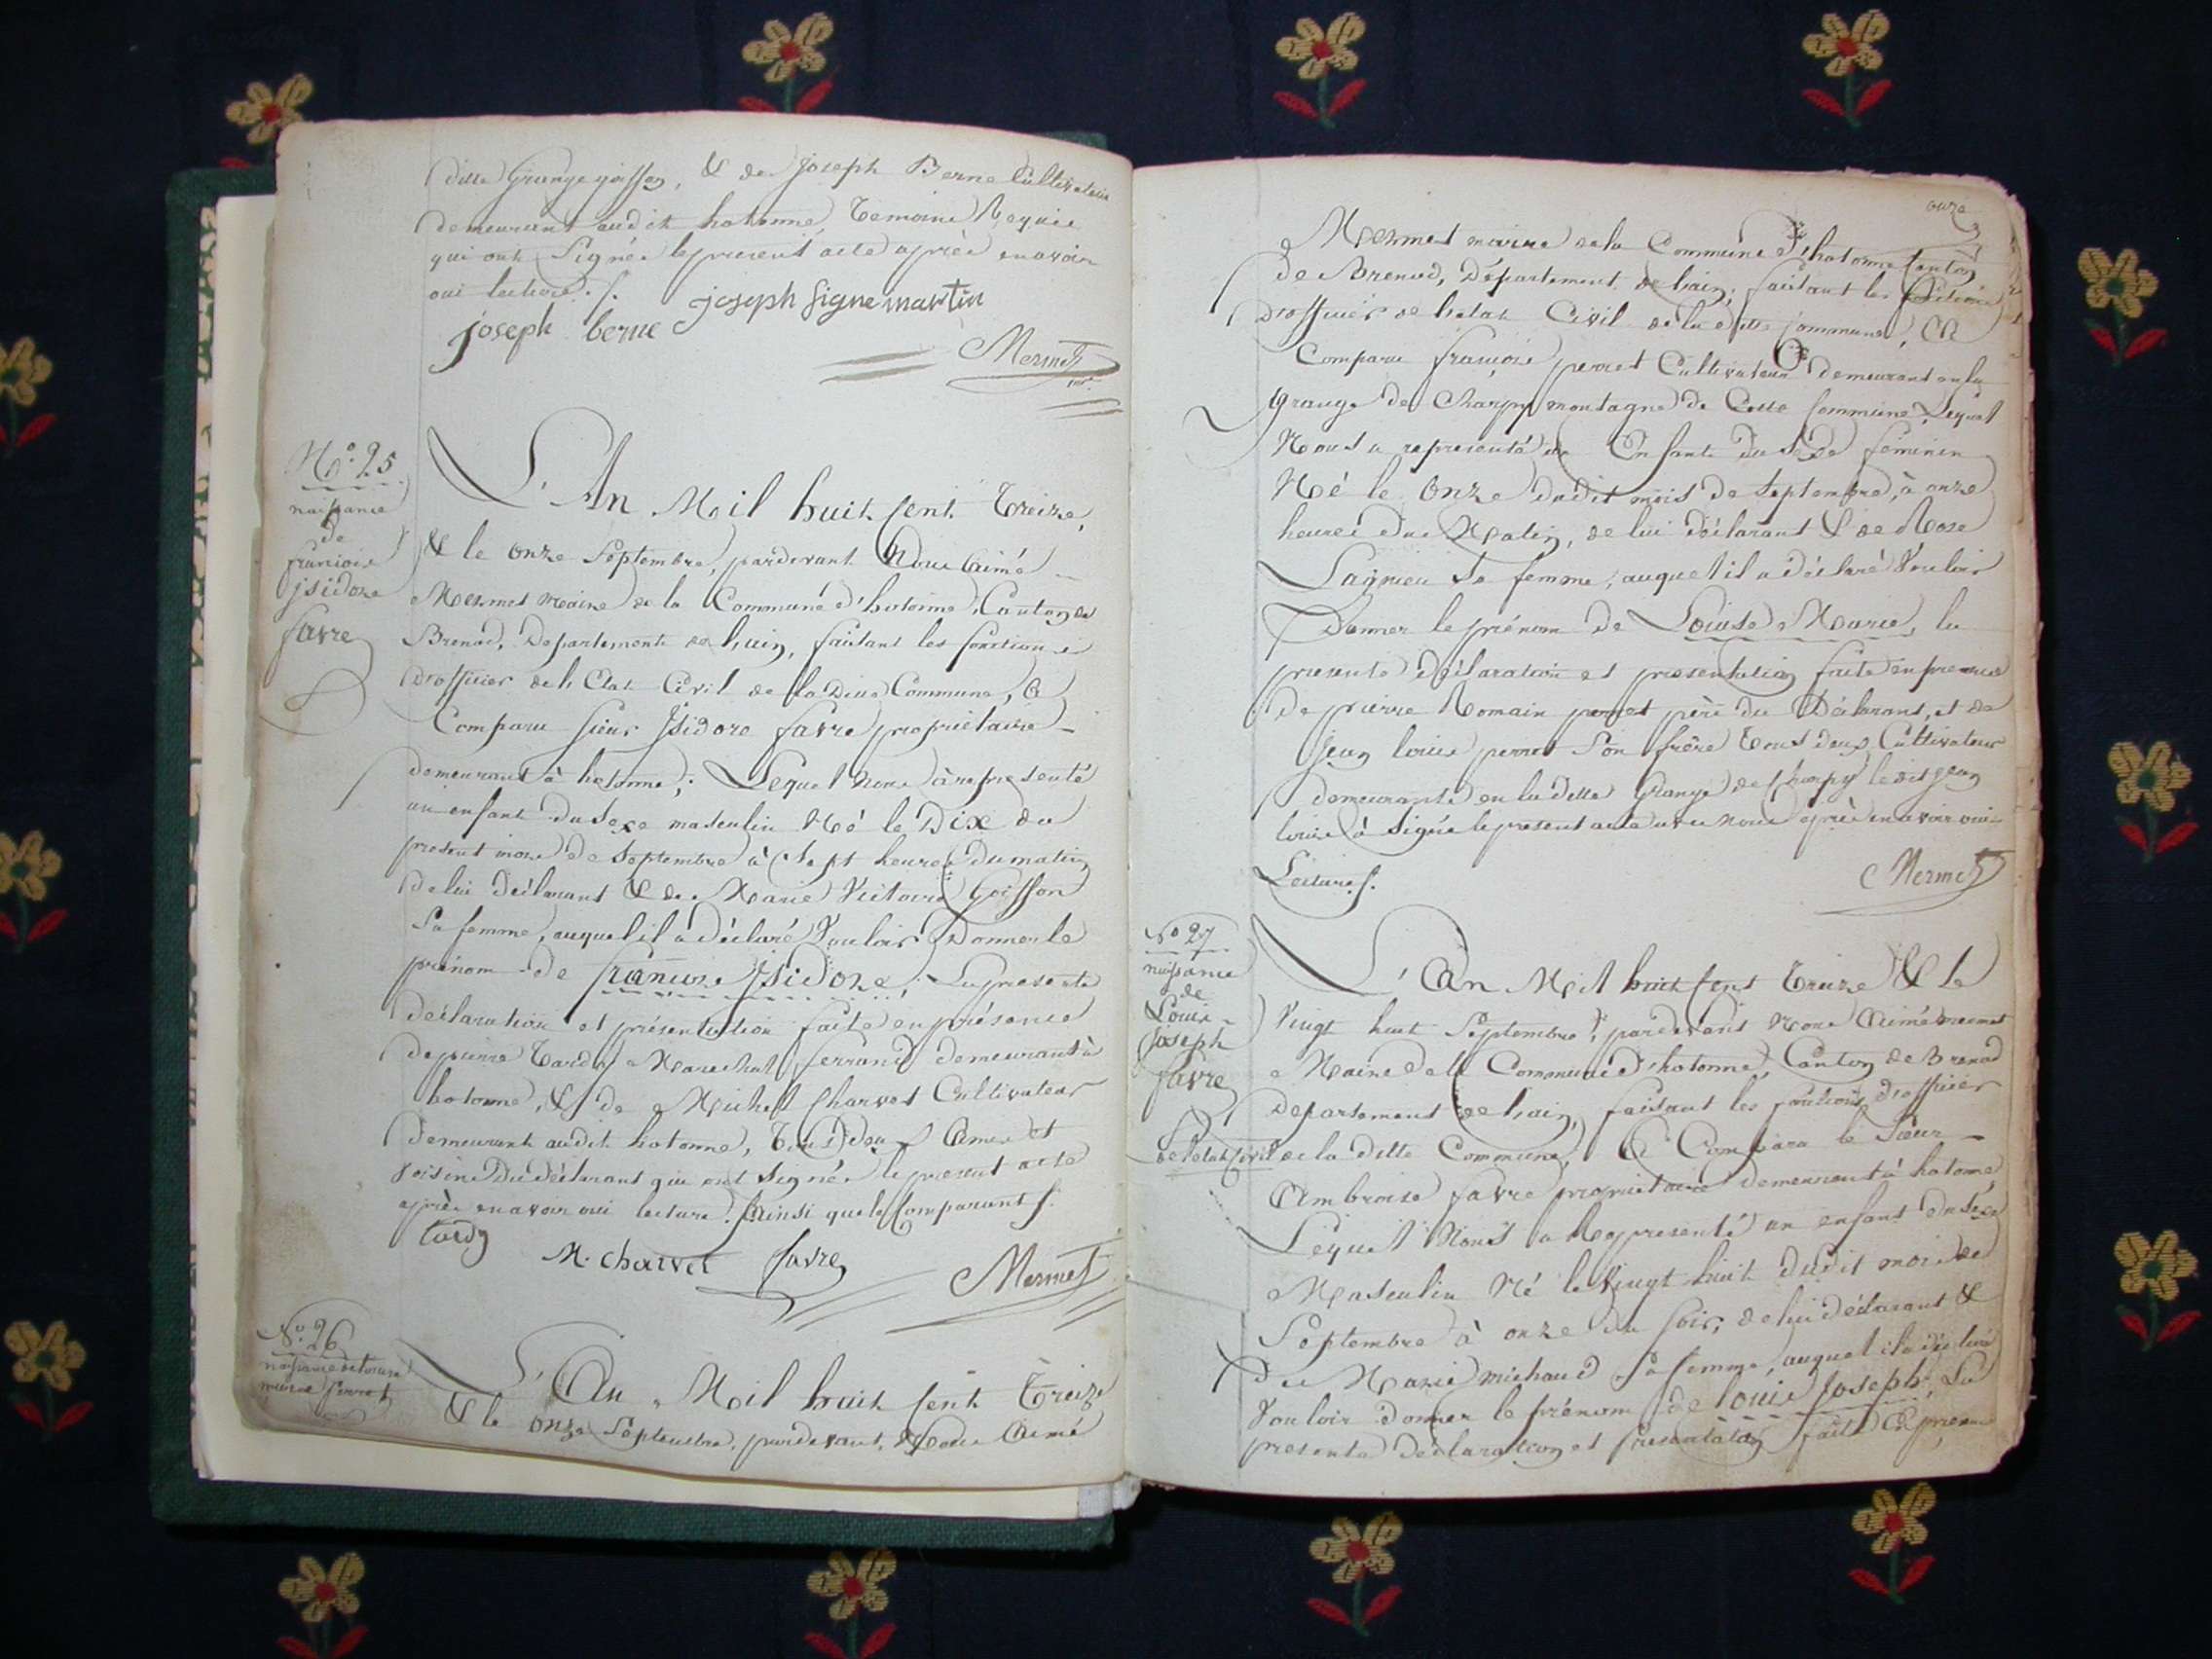 ditte Grange goiffon, & de joseph Berne Cultivateur
demeurant audit hotonne, temoins Requis
qui ont Signés le present acte après en avoir
oui lecture ./.
joseph Signe martin
joseph berne
Mermet
mre
No. 25
naissance
de
françois
jsidore
favre
L'An Mil huit Cent Treize,
& le onze Septembre, pardevant Nous Aimé
Mermet Maire de la Commune d'hotonne, Canton de
Brenod, Departement de l'ain, faisant les fonctions
d'officier de l'Etat Civil de la dite Commune, a
Comparu sieur Jsidore favre propriétaire
demeurant à hotonne; Lequel nous à représenté
un enfant du Sexe masculin Né le Dix du
present mois de Septembre à Sept heures du matin
de lui déclarant & de Marie Victoire Goiffon
Sa femme, auquel il a déclaré Vouloir Donner le
prénom de françois Jsidore, La presente
déclaration et présentation faite en présence
de pierre Tardy Marechal ferrand demeurant à
hotonne, & de Michel Charvet Cultivateur
demeurant audit hotonne, tous deux Amis et
voisins du déclarant qui ont Signés le present acte
après en avoir oui lecture. Ainsi que le Comparant ./.
tardy M. Charvet favre Mermet
No. 26
naissance de louise
marie perret
L'An Mil huit Cent Treize
& le onze Septembre, pardevant, Nous Aimé
onze
Mermet maire de la Commune d'hotonne Canton
de Brenod, Département de l'ain, faisant les fonctions
d'officier de l'etat Civil de la ditte Commune, est
Comparu françois perret Cultivateur demeurant en la
grange de Charpy montagne de Cette Commune, Lequel
Nous a representé un Enfant du Sexe féminin
Né le Onze dudit mois de Septembre, à onze
heures du Matin, de lui déclarant & de Rose
Lagnieu Sa femme, auquel il a déclaré Vouloir
Donner le prénom de Louise Marie, la
presente déclaration et presentation faite en presence
de pierre Romain perret père du Déclarant, et de
jean louis perret Son frère tous deux Cultivateur
demeurants en la ditte Grange de Charpy le dit jean
louis à Signé le present acte avec nous après en avoir oui
Lecture ./.
Mermet
No 27
naissance
de
Louis
joseph
favre
L'An Mil huit Cent Treize & le
Vingt huit Septembre, pardevant Nous Aimé mermet
Maire de la Commune d'hotonne, Canton de Brenod
departement de l'ain, faisant les fonctions d'officier
de l'etat Civil de la ditte Commune, Est Comparu le Sieur
Ambroise favre propriétaire demeurant à hotonne,
Lequel Nous a Representé un enfant du Sexe
Masculin Né le Vingt huit dudit mois de
Septembre à onze du soir, de lui déclarant &
De Marie michaud Sa femme, auquel il a déclaré
Vouloir donner le prénom de louis Joseph, La
presente Declaration et presentation faite En presence